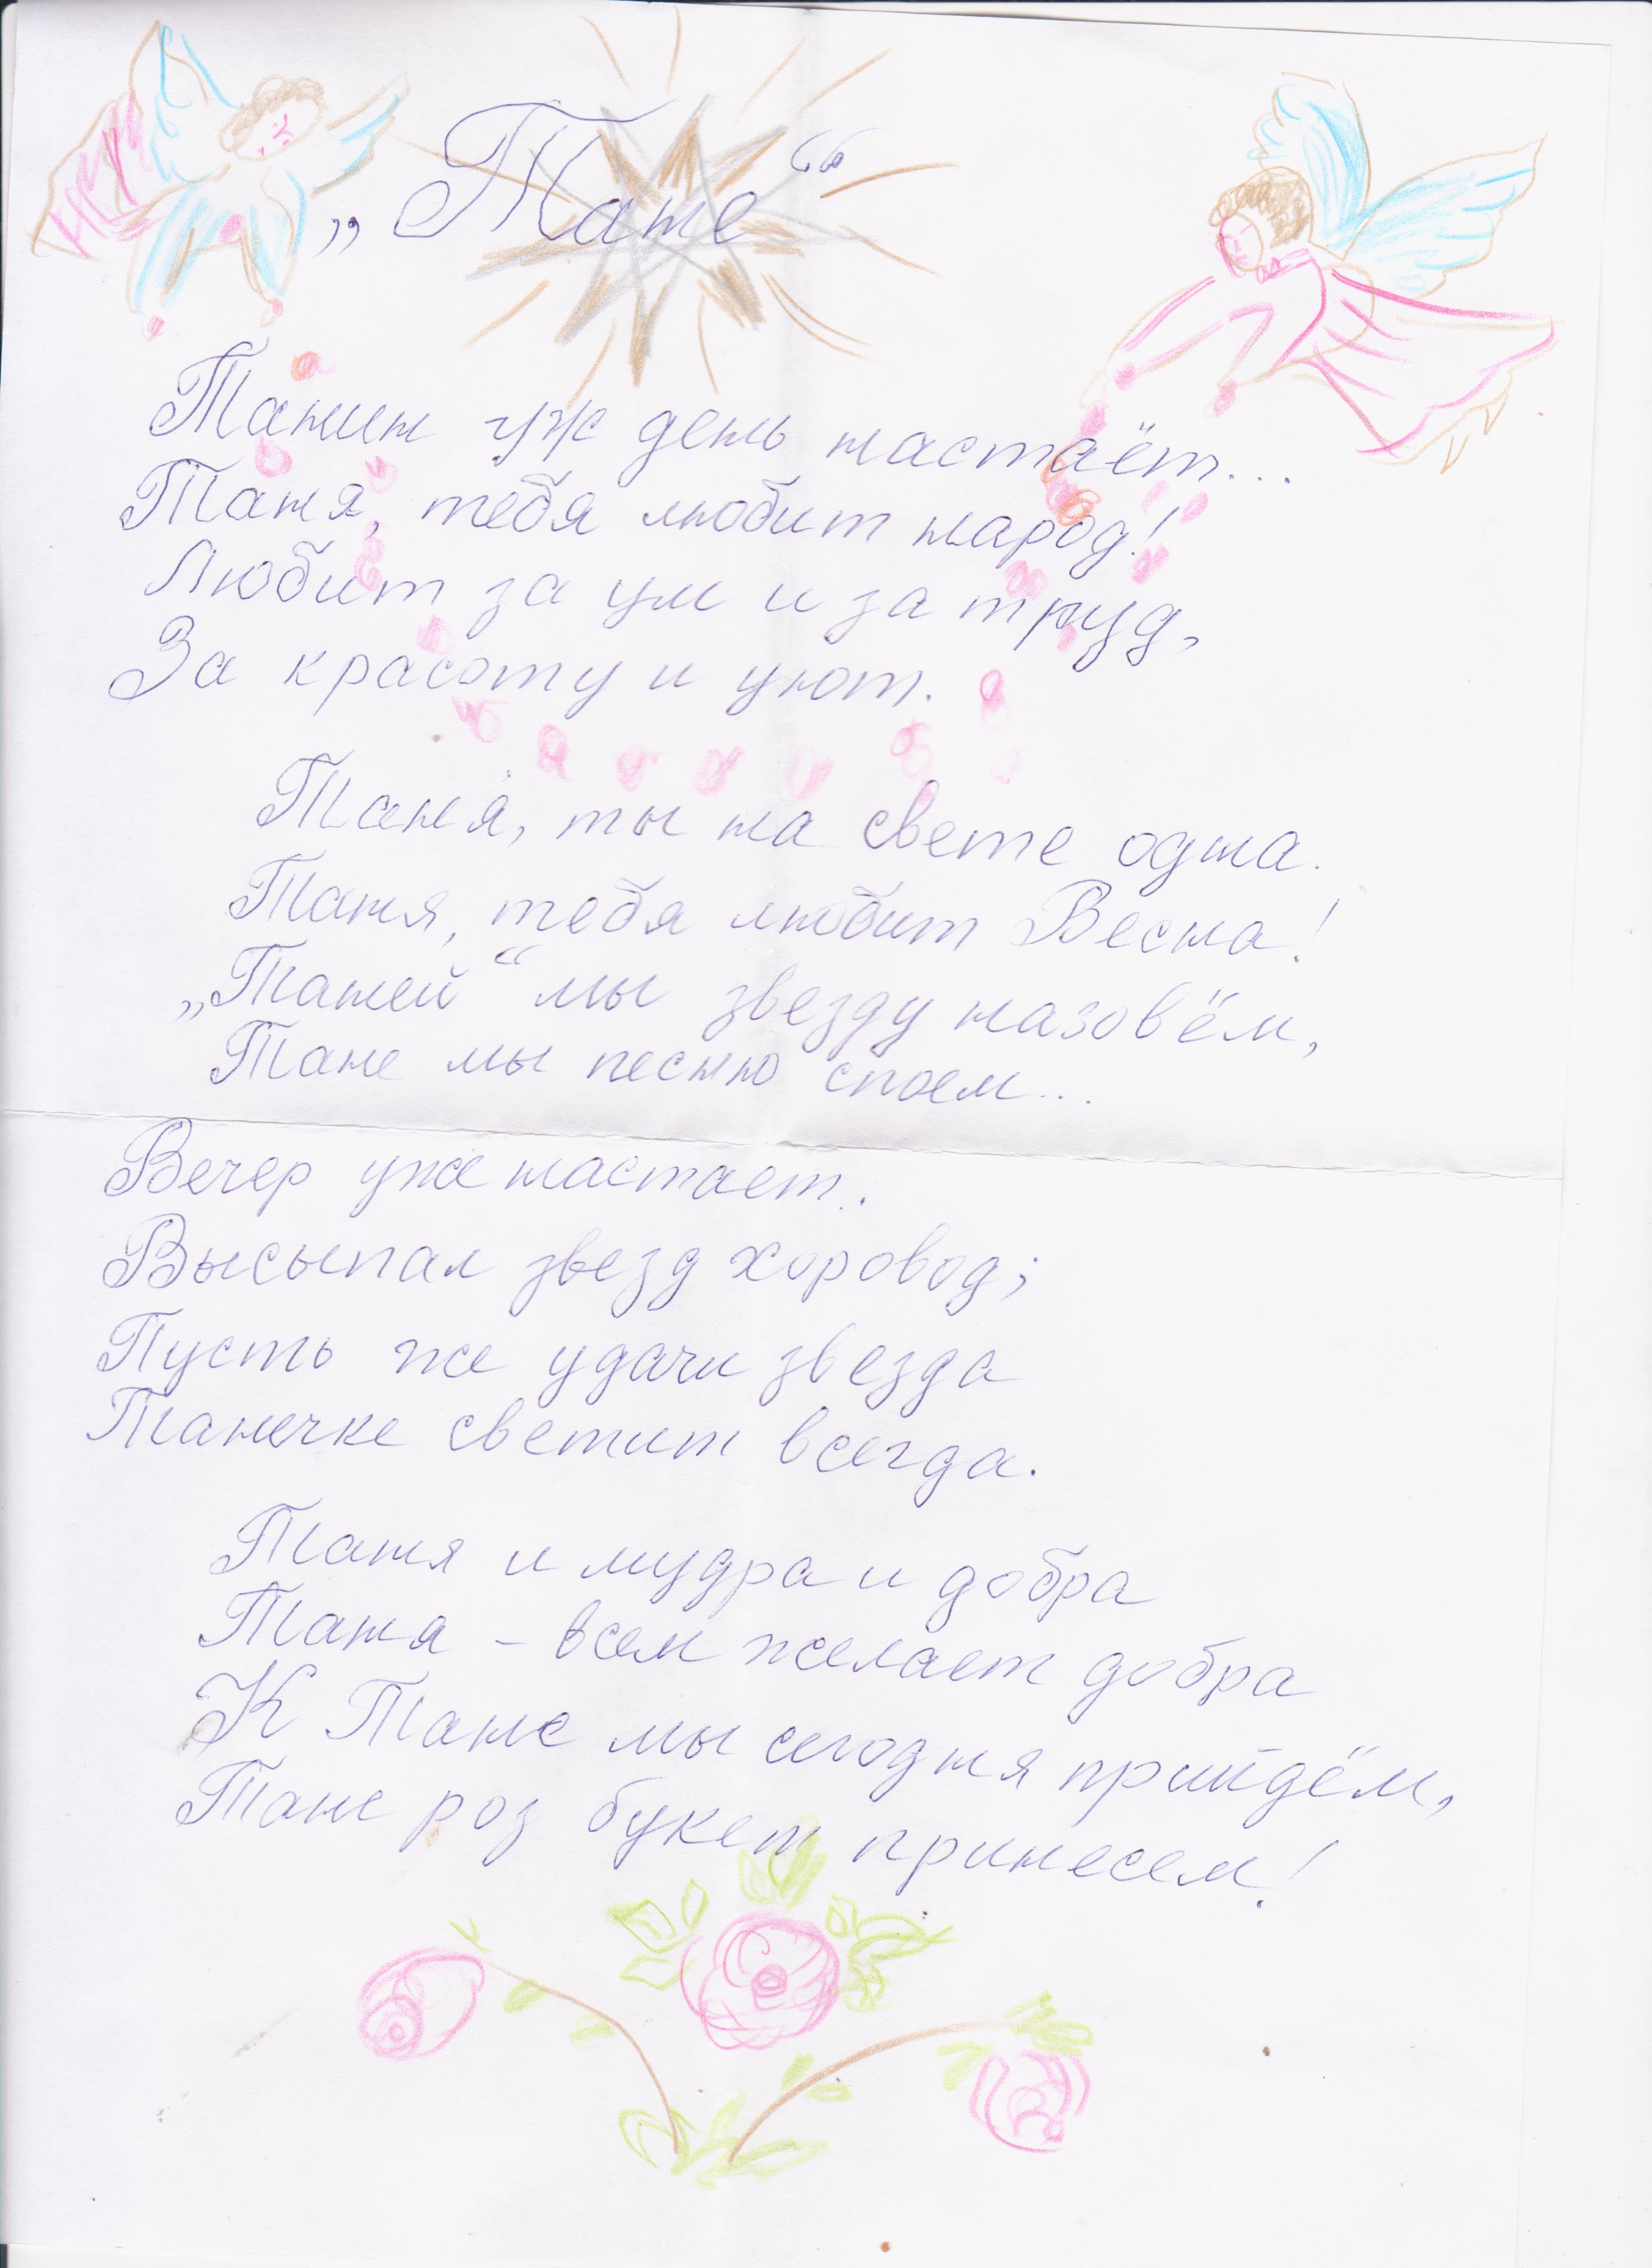 „Тане“
Танин уж день настаёт...
Таня, тебя любит народ!
Любит за ум и за труд,
За красоту и уют.
Таня, ты на свете одна.
Таня, тебя любит Весна!
„Таней“ мы звезду назовём,
Тане мы песню споем...
Вечер уже настает.
Высыпал звезд хоровод;
Пусть же удачи звезда
Танечке светит всегда.
Таня и мудра и добра
Таня - всем желает добра
К Тане мы сегодня прийдём,
Тане роз букет принесем!